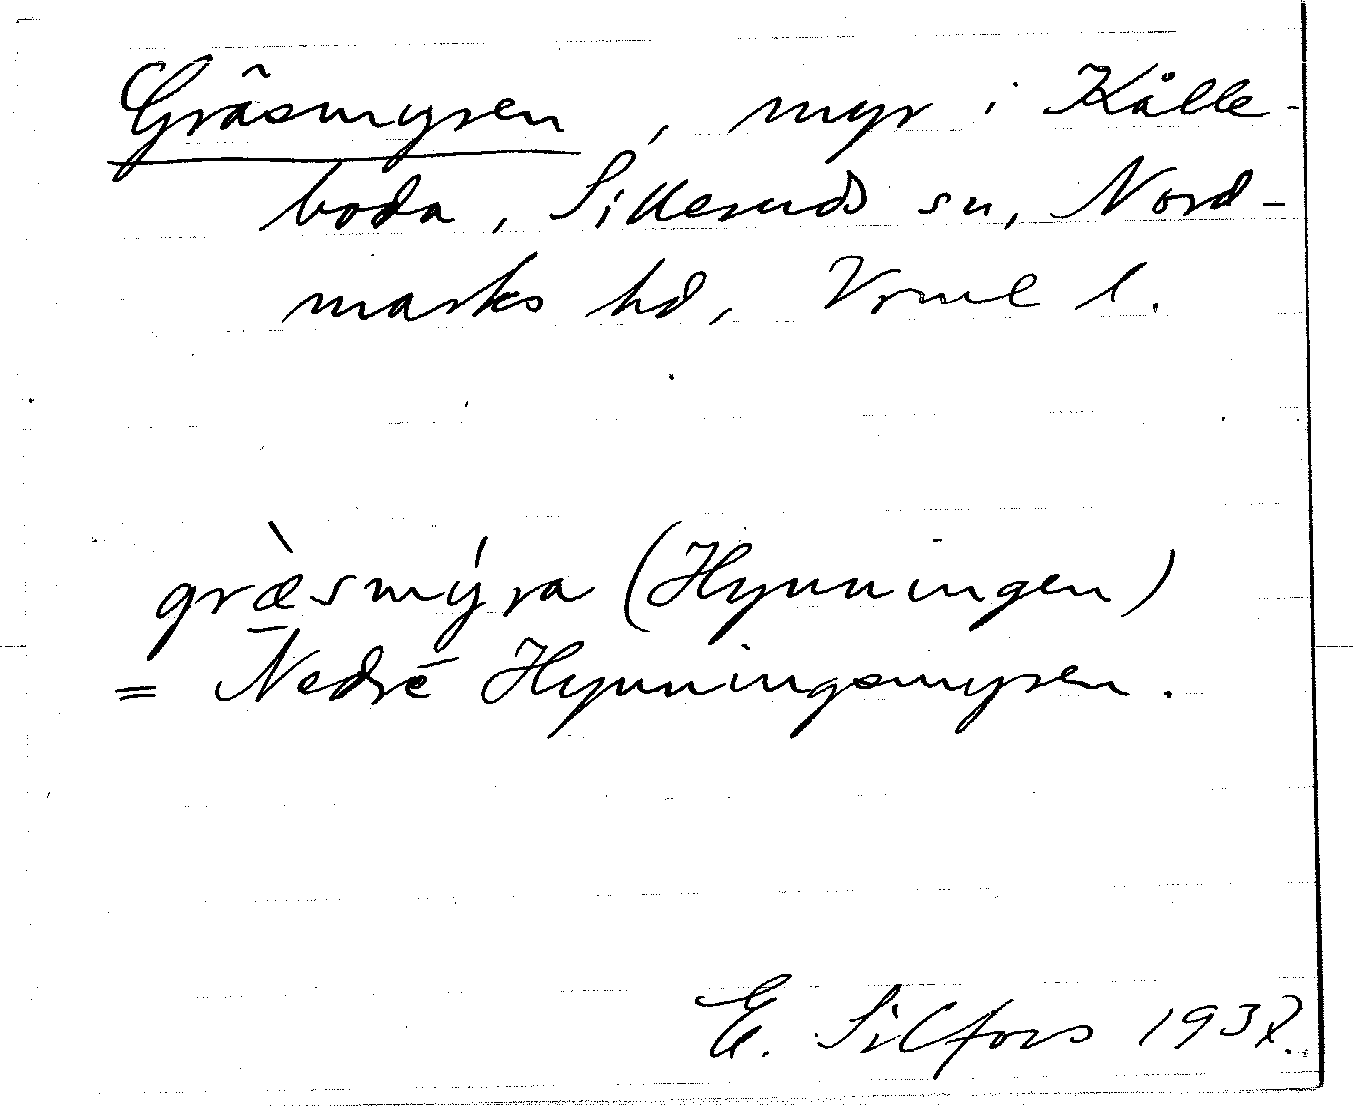 Gräsmyren, myr i Kålle-
boda, Silleruds sn, Nord-
marks hd, Vrml l.
græ̀smýra (Hynningen)
= Nedre Hynningsmyren.
E. Silfors